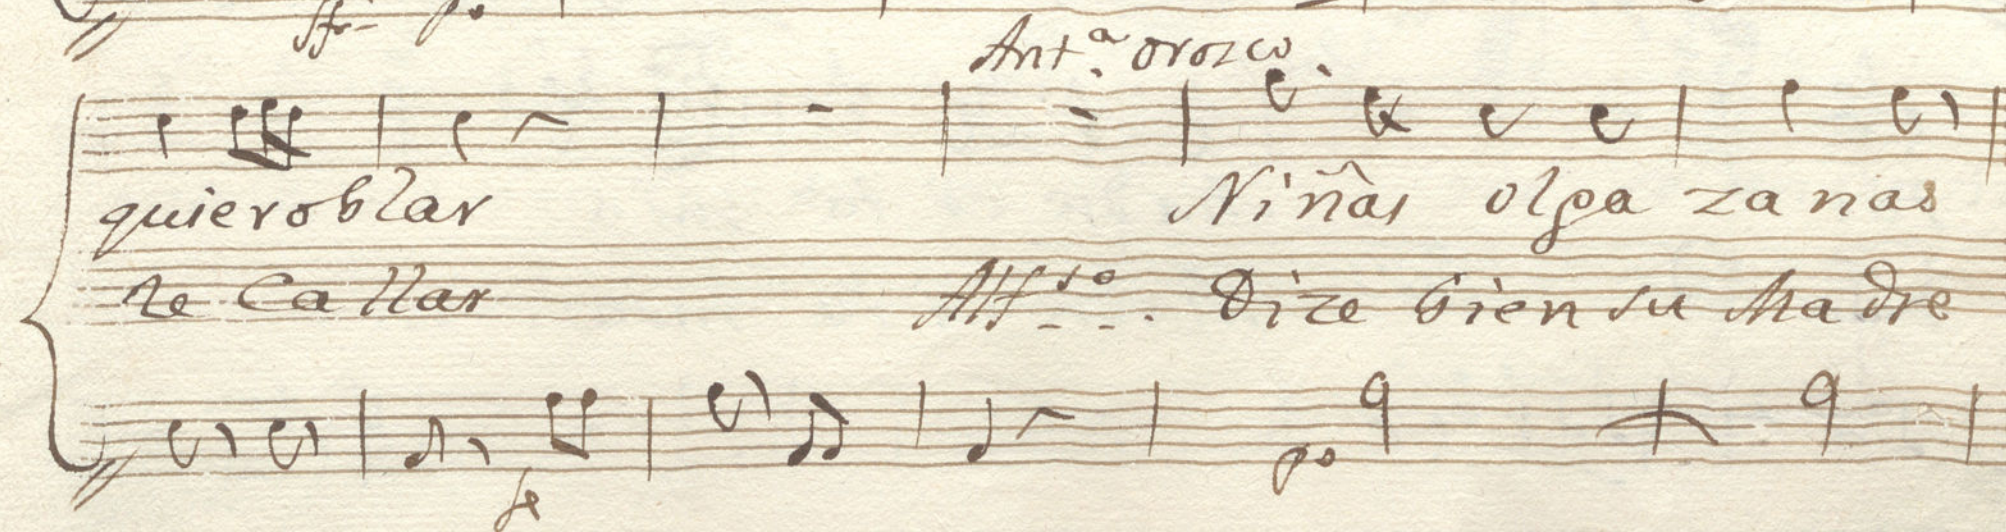 Ant.ª orozco.
quieroblar Niñas olgazanas
te Callar Alf.so Dize bien su Madre
fe
po